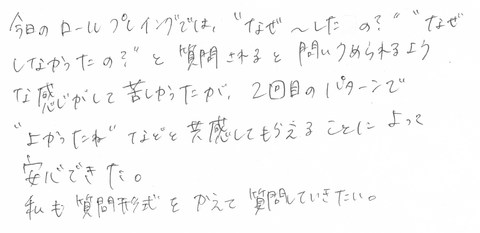 今日のロールプレイングでは、"なぜ〜したの?" "なぜ
しなかったの?"と質問されると問いつめられるよう
な感じがして苦しかったが、2回目のパターンで
"よかったね"などと共感してもらえることによって
安心できた。
私も質問形式をかえて質問していきたい。